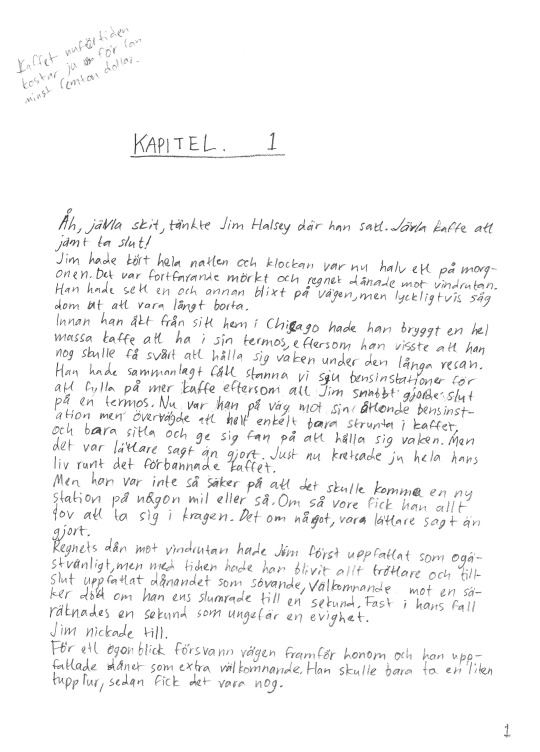 Kaffet nuförtiden
kostar ju för fan
minst femton dollar.
KAPITEL. 1
Åh, jävla skit, tänkte Jim Halsey där han satt. Jävla kaffe att
jämt ta slut!
Jim hade kört hela natten och klockan var nu halv ett på morg-
onen. Det var fortfarande mörkt och regnet dånade mot vindrutan.
Han hade sett en och annan blixt på vägen, men lyckligtvis såg
dom ut att vara långt borta.
Innan han åkt från sitt hem i Chicago hade han bryggt en hel
massa kaffe att ha i sin termos, eftersom han visste att han
nog skulle få svårt att hålla sig vaken under den långa resan.
Han hade sammanlagt fått stanna vi sju bensinstationer för
att fylla på mer kaffe eftersom att Jim snabbt gjorde slut
på en termos. Nu var han på väg mot sin åttonde bensinst-
ation men övervägde att helt enkelt bara strunta i kaffet,
och bara sitta och ge sig fan på att hålla sig vaken. Men
det var lättare sagt än gjort. Just nu kretsade ju hela hans
liv runt det förbannade kaffet.
Men han var inte så säker på att det skulle komma en ny
station på någon mil eller så. Om så vore fick han allt
lov att ta sig i kragen. Det om något, vara lättare sagt än
gjort.
Regnets dån mot vindrutan hade Jim först uppfattat som ogä-
stvänligt, men med tiden hade han blivit allt tröttare och till-
slut uppfattat dånandet som sövande, Välkomnande mot en sä-
ker död om han ens slumrade till en sekund. Fast i hans fall
räknades en sekund som ungefär en evighet.
Jim nickade till.
För ett ögonblick försvann vägen framför honom och han upp-
fattade dånet som extra välkomnande. Han skulle bara ta en liten
tupplur, sedan fick det vara nog.
1